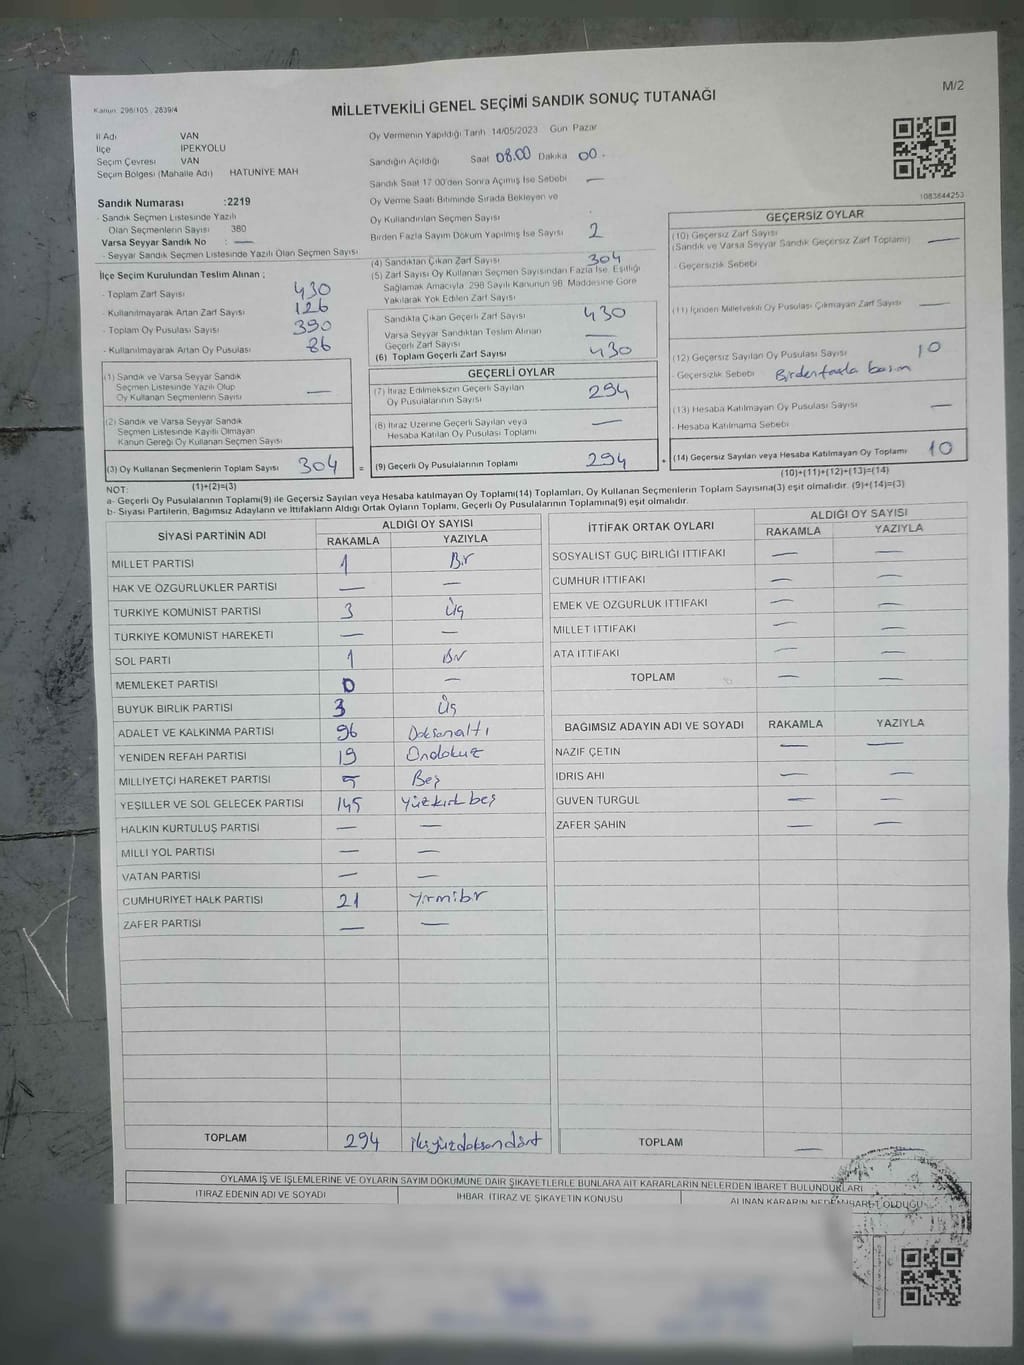 Kanun 298/105 , 2839/4
M/2
MİLLETVEKİLİ GENEL SEÇİMİ SANDIK SONUÇ TUTANAĞI
İl Adı VAN
İlçe İPEKYOLU
Seçim Çevresi VAN
Seçim Bölgesi (Mahalle Adı) HATUNİYE MAH
Sandık Numarası :2219
- Sandık Seçmen Listesinde Yazılı
Olan Seçmenlerin Sayısı 380
Varsa Seyyar Sandık No : —
- Seyyar Sandık Seçmen Listesinde Yazılı Olan Seçmen Sayısı
Oy Vermenin Yapıldığı Tarih 14/05/2023 Gün Pazar
Sandığın Açıldığı Saat 08.00 Dakika 00.
Sandık Saat 17 00'den Sonra Açımış İse Sebebi —
Oy Verme Saati Bitiminde Sırada Bekleyen ve
Oy Kullandırılan Seçmen Sayısı
Birden Fazla Sayım Döküm Yapılmış İse Sayısı 2
1083844253
İlçe Seçim Kurulundan Teslim Alınan ;
- Toplam Zarf Sayısı 430
- Kullanılmayarak Artan Zarf Sayısı 126
- Toplam Oy Pusulası Sayısı 390
- Kullanılmayarak Artan Oy Pusulası 86
(1) Sandık ve Varsa Seyyar Sandık
Seçmen Listesinde Yazılı Olup
Oy Kullanan Seçmenlerin Sayısı —
(2) Sandık ve Varsa Seyyar Sandık
Seçmen Listesinde Kayıtlı Olmayan
Kanun Gereği Oy Kullanan Seçmen Sayısı
(3) Oy Kullanan Seçmenlerin Toplam Sayısı 304 =
(1)+(2)=(3)
(4) Sandıktan Çıkan Zarf Sayısı 304
(5) Zarf Sayısı Oy Kullanan Seçmen Sayısından Fazla İse, Eşitliği
Sağlamak Amacıyla 298 Sayılı Kanunun 98. Maddesine Göre
Yakılarak Yok Edilen Zarf Sayısı
Sandıkta Çıkan Geçerli Zarf Sayısı 430
Varsa Seyyar Sandıktan Teslim Alınan
Geçerli Zarf Sayısı —
(6) Toplam Geçerli Zarf Sayısı 430
GEÇERLİ OYLAR
(7) İtiraz Edilmeksizin Geçerli Sayılan
Oy Pusulalarının Sayısı 294
(8) İtiraz Üzerine Geçerli Sayılan veya
Hesaba Katılan Oy Pusulası Toplamı —
(9) Geçerli Oy Pusulalarının Toplamı 294 +
GEÇERSİZ OYLAR
(10) Geçersiz Zarf Sayısı
(Sandık ve Varsa Seyyar Sandık Geçersiz Zarf Toplamı) —
- Geçersizlik Sebebi
(11) İçinden Milletvekili Oy Pusulası Çıkmayan Zarf Sayısı —
(12) Geçersiz Sayılan Oy Pusulası Sayısı 10
- Geçersizlik Sebebi Birden fazla basım
(13) Hesaba Katılmayan Oy Pusulası Sayısı —
- Hesaba Katılmama Sebebi
(14) Geçersiz Sayılan veya Hesaba Katılmayan Oy Toplamı 10
(10)+(11)+(12)+(13)=(14)
NOT:
a- Geçerli Oy Pusulalarının Toplamı(9) ile Geçersiz Sayılan veya Hesaba katılmayan Oy Toplamı(14) Toplamları, Oy Kullanan Seçmenlerin Toplam Sayısına(3) eşit olmalıdır. (9)+(14)=(3)
b- Siyasi Partilerin, Bağımsız Adayların ve İttifakların Aldığı Ortak Oyların Toplamı, Geçerli Oy Pusulalarının Toplamına(9) eşit olmalıdır.
SİYASİ PARTİNİN ADI ALDIĞI OY SAYISI
RAKAMLA YAZIYLA
MİLLET PARTİSİ 1 Bir
HAK VE ÖZGÜRLÜKLER PARTİSİ — —
TÜRKİYE KOMÜNİST PARTİSİ 3 Üç
TÜRKİYE KOMÜNİST HAREKETİ — —
SOL PARTİ 1 Bir
MEMLEKET PARTİSİ 0 —
BÜYÜK BİRLİK PARTİSİ 3 Üç
ADALET VE KALKINMA PARTİSİ 96 Doksanaltı
YENİDEN REFAH PARTİSİ 19 Ondokuz
MİLLİYETÇİ HAREKET PARTİSİ 5 Beş
YEŞİLLER VE SOL GELECEK PARTİSİ 145 Yüzkırk beş
HALKIN KURTULUŞ PARTİSİ — —
MİLLİ YOL PARTİSİ — —
VATAN PARTİSİ — —
CUMHURİYET HALK PARTİSİ 21 Yirmibir
ZAFER PARTİSİ — —
TOPLAM 294 ikiyüzdoksandört
İTTİFAK ORTAK OYLARI ALDIĞI OY SAYISI
RAKAMLA YAZIYLA
SOSYALİST GÜÇ BİRLİĞİ İTTİFAKI — —
CUMHUR İTTİFAKI — —
EMEK VE ÖZGÜRLÜK İTTİFAKI — —
MİLLET İTTİFAKI — —
ATA İTTİFAKI — —
TOPLAM — —
BAĞIMSIZ ADAYIN ADI VE SOYADI RAKAMLA YAZIYLA
NAZİF ÇETİN — —
İDRİS AHİ — —
GÜVEN TURGUL — —
ZAFER ŞAHİN — —
TOPLAM —
OYLAMA İŞ VE İŞLEMLERİNE VE OYLARIN SAYIM DÖKÜMÜNE DAİR ŞİKAYETLERLE BUNLARA AİT KARARLARIN NELERDEN İBARET BULUNDUKLARI
İTİRAZ EDENİN ADI VE SOYADI İHBAR, İTİRAZ VE ŞİKAYETİN KONUSU ALINAN KARARIN NEDEN İBARET OLDUĞU